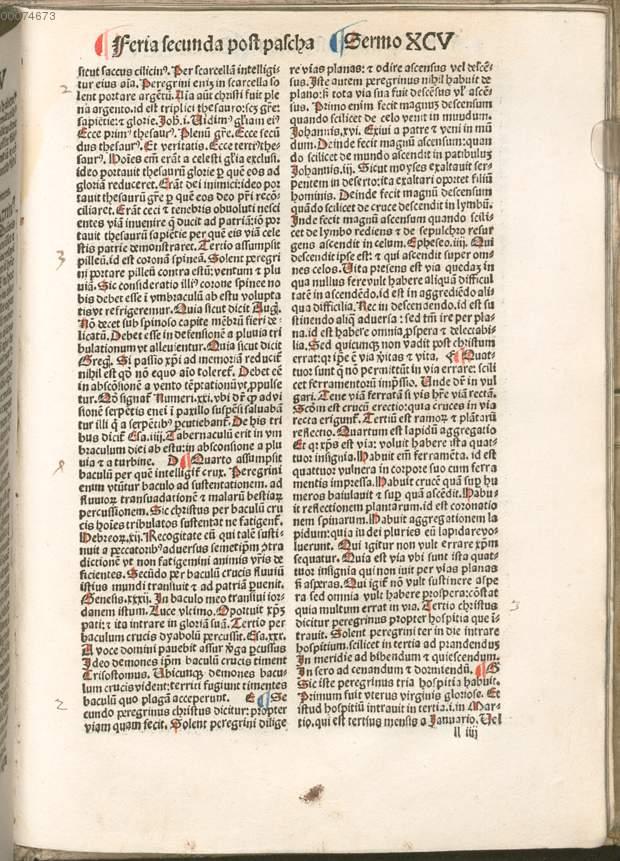 00074673
Feria secunda post pascha Sermo XCV
sicut saccus cilicinꝰ. Per scarcellā intelligi-
tur eius aīa. Peregrini eniꝫ in scarcella so
lent portare argētū. Aīa aūt christi fuit ple
na argento. id est triplici thesauro: scꝫ grē:
sapiētie: ⁊ glorie. Joh. i. Uidimꝰ gl̄iam eiꝰ
Ecce primꝰ thesaurꝰ. Plenū gr̄e. Ecce secū
dus thesaurꝰ. Et veritatis. Ecce terciꝰ the-
saurꝰ. Hoīes em̄ erāt a celesti gl̄ia exclusi.
ideo portauit thesaurū glorie ꝑ quē eos ad
gloriā reduceret. Erāt dei inimici: ideo por
tauit thesaurū gr̄e ꝑ quē eos deo pr̄i recōc-
ciliaret. Erāt ceci ⁊ tenebris obuoluti nesci
entes viā inuenire q̄ ducit ad patriā: iō por
tauit thesaurū sapiētie per quē eis viā cele
stis patrie demonstraret. Tertio assumpsit
pilleū. id est coronā spineā. Solent peregri
ni portare pilleū contra estū: ventum ⁊ plu
uiā. Sic consideratio illiꝰ corone spinee no
bis debet esse ī vmbraculū ab estu volupta
tis vt refrigeremur. Quia sicut dicit Aug.
Nō decet sub spinoso capite mēbrū fieri de-
licatū. Debet esse in defensionē a pluuia tri
bulationum vt alleuientur. Quia sicut dicit
Greg. Si passio xp̄i ad memoriā reducit̄
nihil est qd̄ nō equo aīo toleret̄. Debet eē
in abscōsionē a vento tēptationū vt ꝓpulse
tur. Qd̄ signat̄ Numeri. xxi. vbi dr̄ ꝙ ad vi
sionē serpētis enei ī paxillo suspēsi saluabā
tur illi q̄ a serpētibꝰ ꝑcutiebant̄. De his tri
bus dicit̄ Esa. iiij. Tabernaculū erit in vm
braculum diei ab estu: in absconsione a plu
uia ⁊ a turbine. D Quarto assumpsit
baculū per quē intelligit̄ crux. Peregrini
enim vtūtur baculo ad sustentationem. ad
fluuioꝝ transuadationē ⁊ malarū bestiaꝝ
percussionem. Sic christus per baculū cru
cis hoīes tribulatos sustentat ne fatigent̄.
Hebreoꝝ. xij. Recogitate eū qui talē susti-
nuit a peccatoribꝰ aduersus semetip̄m ꝯtra
dictionē vt non fatigemini animis vr̄is de
ficientes. Secūdo per baculū crucis fluuiū
istius mundi transiuit ⁊ ad patriā puenit.
Genesis. xxxij. In baculo meo transiui ior-
danem istum. Luce vltimo. Oportuit xp̄ꝫ
pati; ⁊ ita intrare in gloriā suā. Tertio per
baculum crucis dyabolū percussit. Esa. xxx.
A voce domini pauebit assur v̄ga ꝑcussus
Ideo demones ip̄m baculū crucis timent
Crisostomus. Ubicunqꝫ demones bacu-
lum crucis vident: territi fugiunt timentes
baculū quo plagā acceperunt. E Se
cundo peregrinus christus dicitur: propter
viam quam fecit. Solent peregrini dilige
re vīas planas: ⁊ odire ascensus vel descē-
sus. Iste autem peregrinus nihil habuit de
plano: s̄ tota via sua fuit descēsus vl̄ ascē-
sus. Primo enim fecit magnuꝫ descensum
quando scilicet de celo venit in mundum.
Johannis. xvi. Exiui a patre ⁊ veni in mū
dum. Deinde fecit magnū ascensum: quan-
do scilicet de mundo ascendit in patibuluꝫ
Johannis. iij. Sicut moyses exaltauit ser-
pentem in deserto: ita exaltari oportet filiū
hominis. Deinde fecit magnū descensum
quādo scilicet de cruce descendit in lymbū.
Inde fecit magnū ascensum quando scili-
cet de lymbo rediens ⁊ de sepulchro resur
gens ascendit in celum. Ephese. iiij. Qui
descendit ipse est: ⁊ qui ascendit super om-
nes celos. Uita presens est via quedaꝫ in
qua nullus fere vult habere aliquā difficul
tatē in ascendēdo. id est in aggrediēdo ali-
qua difficilia. Nec in descendendo. id est su
stinendo aliq̄ aduersa: sed tm̄ ire per pla-
na. id est habere omnia ꝓspera ⁊ delectabi-
lia. Sed quicunqꝫ non vadit post christum
errat: qꝛ ip̄e ē via v̄itas ⁊ vita. F Quat-
tuor sunt q̄ nō permittūt in via errare: scili
cet ferramentorū impressio. Unde dr̄ in vul
gari. Tene viā ferratā si vis hr̄e viā rectā.
Scd̄m est crucū erectio: quia cruces in via
recta erigunt̄. Tertiū est ramoꝝ ⁊ plātarū
reflectio. Quartum est lapidū aggregatio
Et qꝛ xp̄s est via: voluit habere ista quat-
tuor insignia. Habuit em̄ ferramēta. id est
quattuor vulnera in corpore suo cum ferra
mentis impressa. Habuit crucē quā suꝑ hu
meros baiulauit ⁊ suꝑ quā ascēdit. Habu-
it reflectionem plantarum. id est coronatio
nem spinarum. Habuit aggregationem la
pidum: quia iudei pluries eū lapidare vo-
luerunt. Qui igitur non vult errare xp̄m
sequatur. Quia est via vbi sunt ista quat-
tuor insignia qui non init per vias planas
s̄ asperas. Qui igit̄ nō vult sustinere aspe
ra sed omnia vult habere prospera: cōstat
quia multum errat in via. Tertio christus
dicitur peregrinus propter hospitia que i-
trauit. Solent peregrini ter in die intrare
hospitium. scilicet in tertia ad prandenduꝫ
In meridie ad bibendum ⁊ quiescendum.
In sero ad cenandum ⁊ dormiendū. G
Sic iste peregrinus tria hospitia habuit.
Primum fuit vterus virginis gloriose. Et
istud hospitiū intrauit in tertia. i. in Mar-
tio. qui est tertius mensis a Januario. Uel
ll iiij